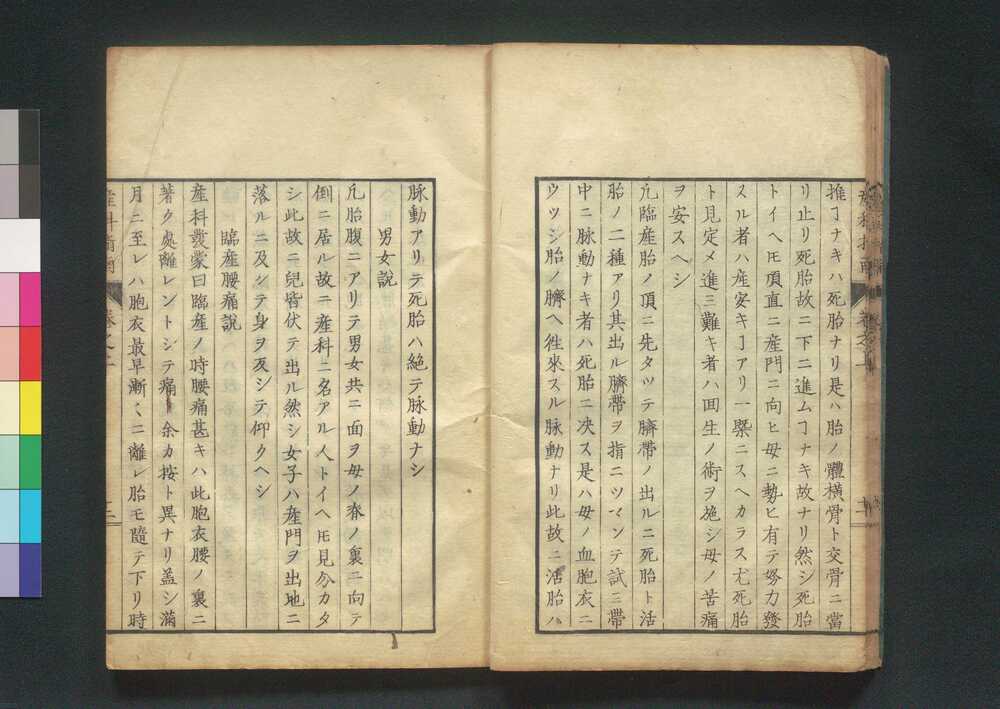 推ヿナキハ死胎ナリ是ハ胎ノ體橫骨ト交骨ニ當
リ止リ死胎故ニ下ニ進ムヿナキ故ナリ然シ死胎
トイヘ𪜈頂直ニ産門ニ向ヒ母ニ勢ヒ有テ努力發
スル者ハ産安キヿアリ一槩ニスヘカラス尤死胎
ト見定メ進ミ難キ者ハ回生ノ術ヲ施シ母ノ苦痛
ヲ安スヘシ
凢臨産胎ノ頂ニ先タツテ臍帶ノ出ルニ死胎ト活
胎ノ二種アリ其出ル臍帶ヲ指ニツマンテ試ミ帶
中ニ脉動ナキ者ハ死胎ニ决ス是ハ母ノ血胞衣ニ
ウツシ胎ノ臍ヘ徃來スル脉動ナリ此故ニ活胎ハ
脉動アリテ死胎ハ絶テ脉動ナシ
男女説
凢胎腹ニアリテ男女共ニ面ヲ母ノ脊ノ裏ニ向テ
倒ニ居ル故ニ産科ニ名アル人トイヘ𪜈見分カタ
シ此故ニ兒皆伏テ出ル然シ女子ハ産門ヲ出地ニ
落ルニ及ンテ身ヲ反シテ仰クヘシ
臨産腰痛説
産科發蒙曰臨産ノ時腰痛甚キハ此胞衣腰ノ裏ニ
著ク處離レントシテ痛ム余カ按ト異ナリ盖シ滿
月ニ至レハ胞衣最早漸〱ニ離レ胎モ隨テ下リ時
産科指南 卷之